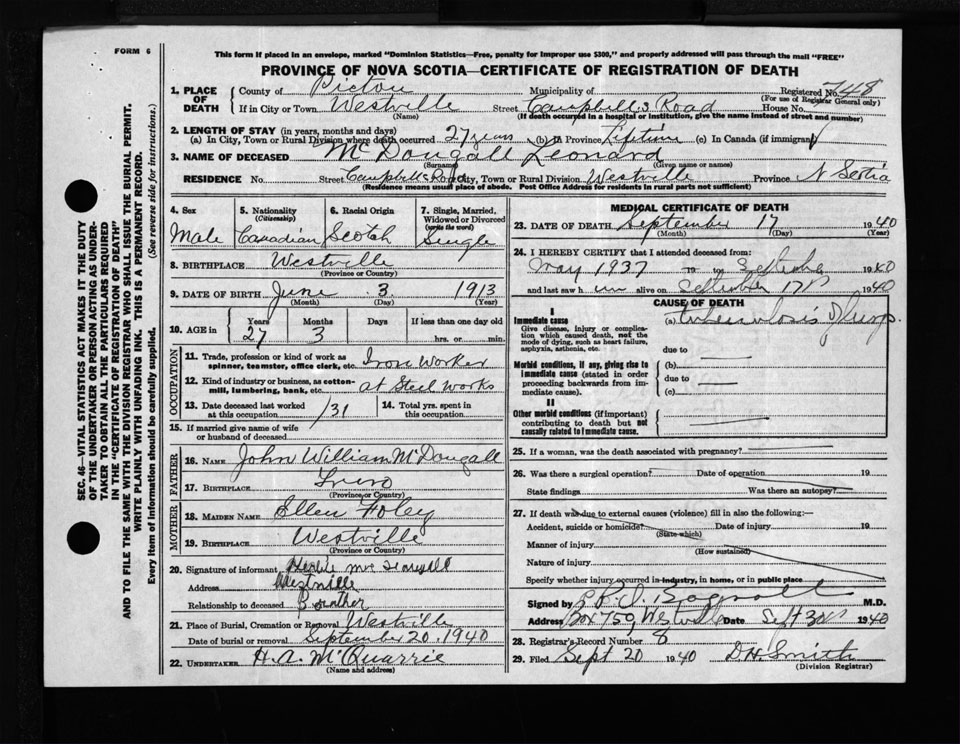 FORM 6
This form if placed in an envelope, marked "Dominion Statistics—Free, penalty for improper use $300," and properly addressed will pass through the mail "FREE"
PROVINCE OF NOVA SCOTIA—CERTIFICATE OF REGISTRATION OF DEATH
SEC. 46—VITAL STATISTICS ACT MAKES IT THE DUTY
OF THE UNDERTAKER OR PERSON ACTING AS UNDER-
TAKER TO OBTAIN ALL THE PARTICULARS REQUIRED
IN THE "CERTIFICATE OF REGISTRATION OF DEATH"
AND TO FILE THE SAME WITH THE DIVISION REGISTRAR WHO SHALL ISSUE THE BURIAL PERMIT.
WRITE PLAINLY WITH UNFADING INK. THIS IS A PERMANENT RECORD.
Every item of information should be carefully supplied. (See reverse side for instructions.)
1. PLACE OF DEATH
County of Pictou Municipality of Registered No. 748
(For use of Registrar General only)
If in City or Town Westville Street Campbell's Road House No.
(Name) (If death occurred in a hospital or institution, give the name instead of street and number)
2. LENGTH OF STAY (in years, months and days)
(a) In City, Town or Rural Division where death occurred 27 years (b) in Province Liptim (c) In Canada (if immigrant)
3. NAME OF DECEASED McDougall Leonard
(Surname) (Given name or names)
RESIDENCE No. Street Campbells Road City, Town or Rural Division Westville Province N Scotia
(Residence means usual place of abode. Post Office Address for residents in rural parts not sufficient)
4. Sex
Male
5. Nationality
(Citizenship)
Canadian
6. Racial Origin
Scotch
7. Single, Married,
Widowed or Divorced
(write the word)
Single
8. BIRTHPLACE Westville
(Province or Country)
9. DATE OF BIRTH June 3 1913
(Month) (Day) (Year)
10. AGE in
Years Months Days If less than one day old
27 3 hrs. or min.
OCCUPATION
11. Trade, profession or kind of work as
spinner, teamster, office clerk, etc. Iron Worker
12. Kind of industry or business, as cotton-
mill, lumbering, bank, etc. at Steel Works
13. Date deceased last worked
at this occupation /31
14. Total yrs. spent in
this occupation
15. If married give name of wife
or husband of deceased
FATHER
16. NAME John William McDougall
17. BIRTHPLACE Truro
(Province or Country)
MOTHER
18. MAIDEN NAME Ellen Foley
19. BIRTHPLACE Westville
(Province or Country)
20. Signature of informant
Address Westville
Relationship to deceased Brother
21. Place of Burial, Cremation or Removal Westville
Date of burial or removal September 20, 1940
22. UNDERTAKER H. A. McQuarrie
(Name and address)
MEDICAL CERTIFICATE OF DEATH
23. DATE OF DEATH September 17 1940
(Month) (Day) (Year)
24. I HEREBY CERTIFY that I attended deceased from:
May 1937 19 to September 1940
and last saw h im alive on September 17th 1940
CAUSE OF DEATH
I
Immediate cause
Give disease, injury or complica-
tion which caused death, not the
mode of dying, such as heart failure,
asphyxia, asthenia, etc.
(a) tuberculosis of lungs.
due to
Morbid conditions, if any, giving rise to
immediate cause (stated in order
proceeding backwards from im-
mediate cause).
(b)
due to
(c)
II
Other morbid conditions (if important)
contributing to death but not
causally related to immediate cause.
25. If a woman, was the death associated with pregnancy?
26. Was there a surgical operation? Date of operation 19
State findings Was there an autopsy?
27. If death was due to external causes (violence) fill in also the following:—
Accident, suicide or homicide? Date of injury 19
(State which)
Manner of injury
(How sustained)
Nature of injury
Specify whether injury occurred in industry, in home, or in public place
Signed by M.D.
Address Box 759, Westville Date Sept 1940
28. Registrar's Record Number 8
29. Filed Sept 20 1940 D.H. Smith
(Division Registrar)